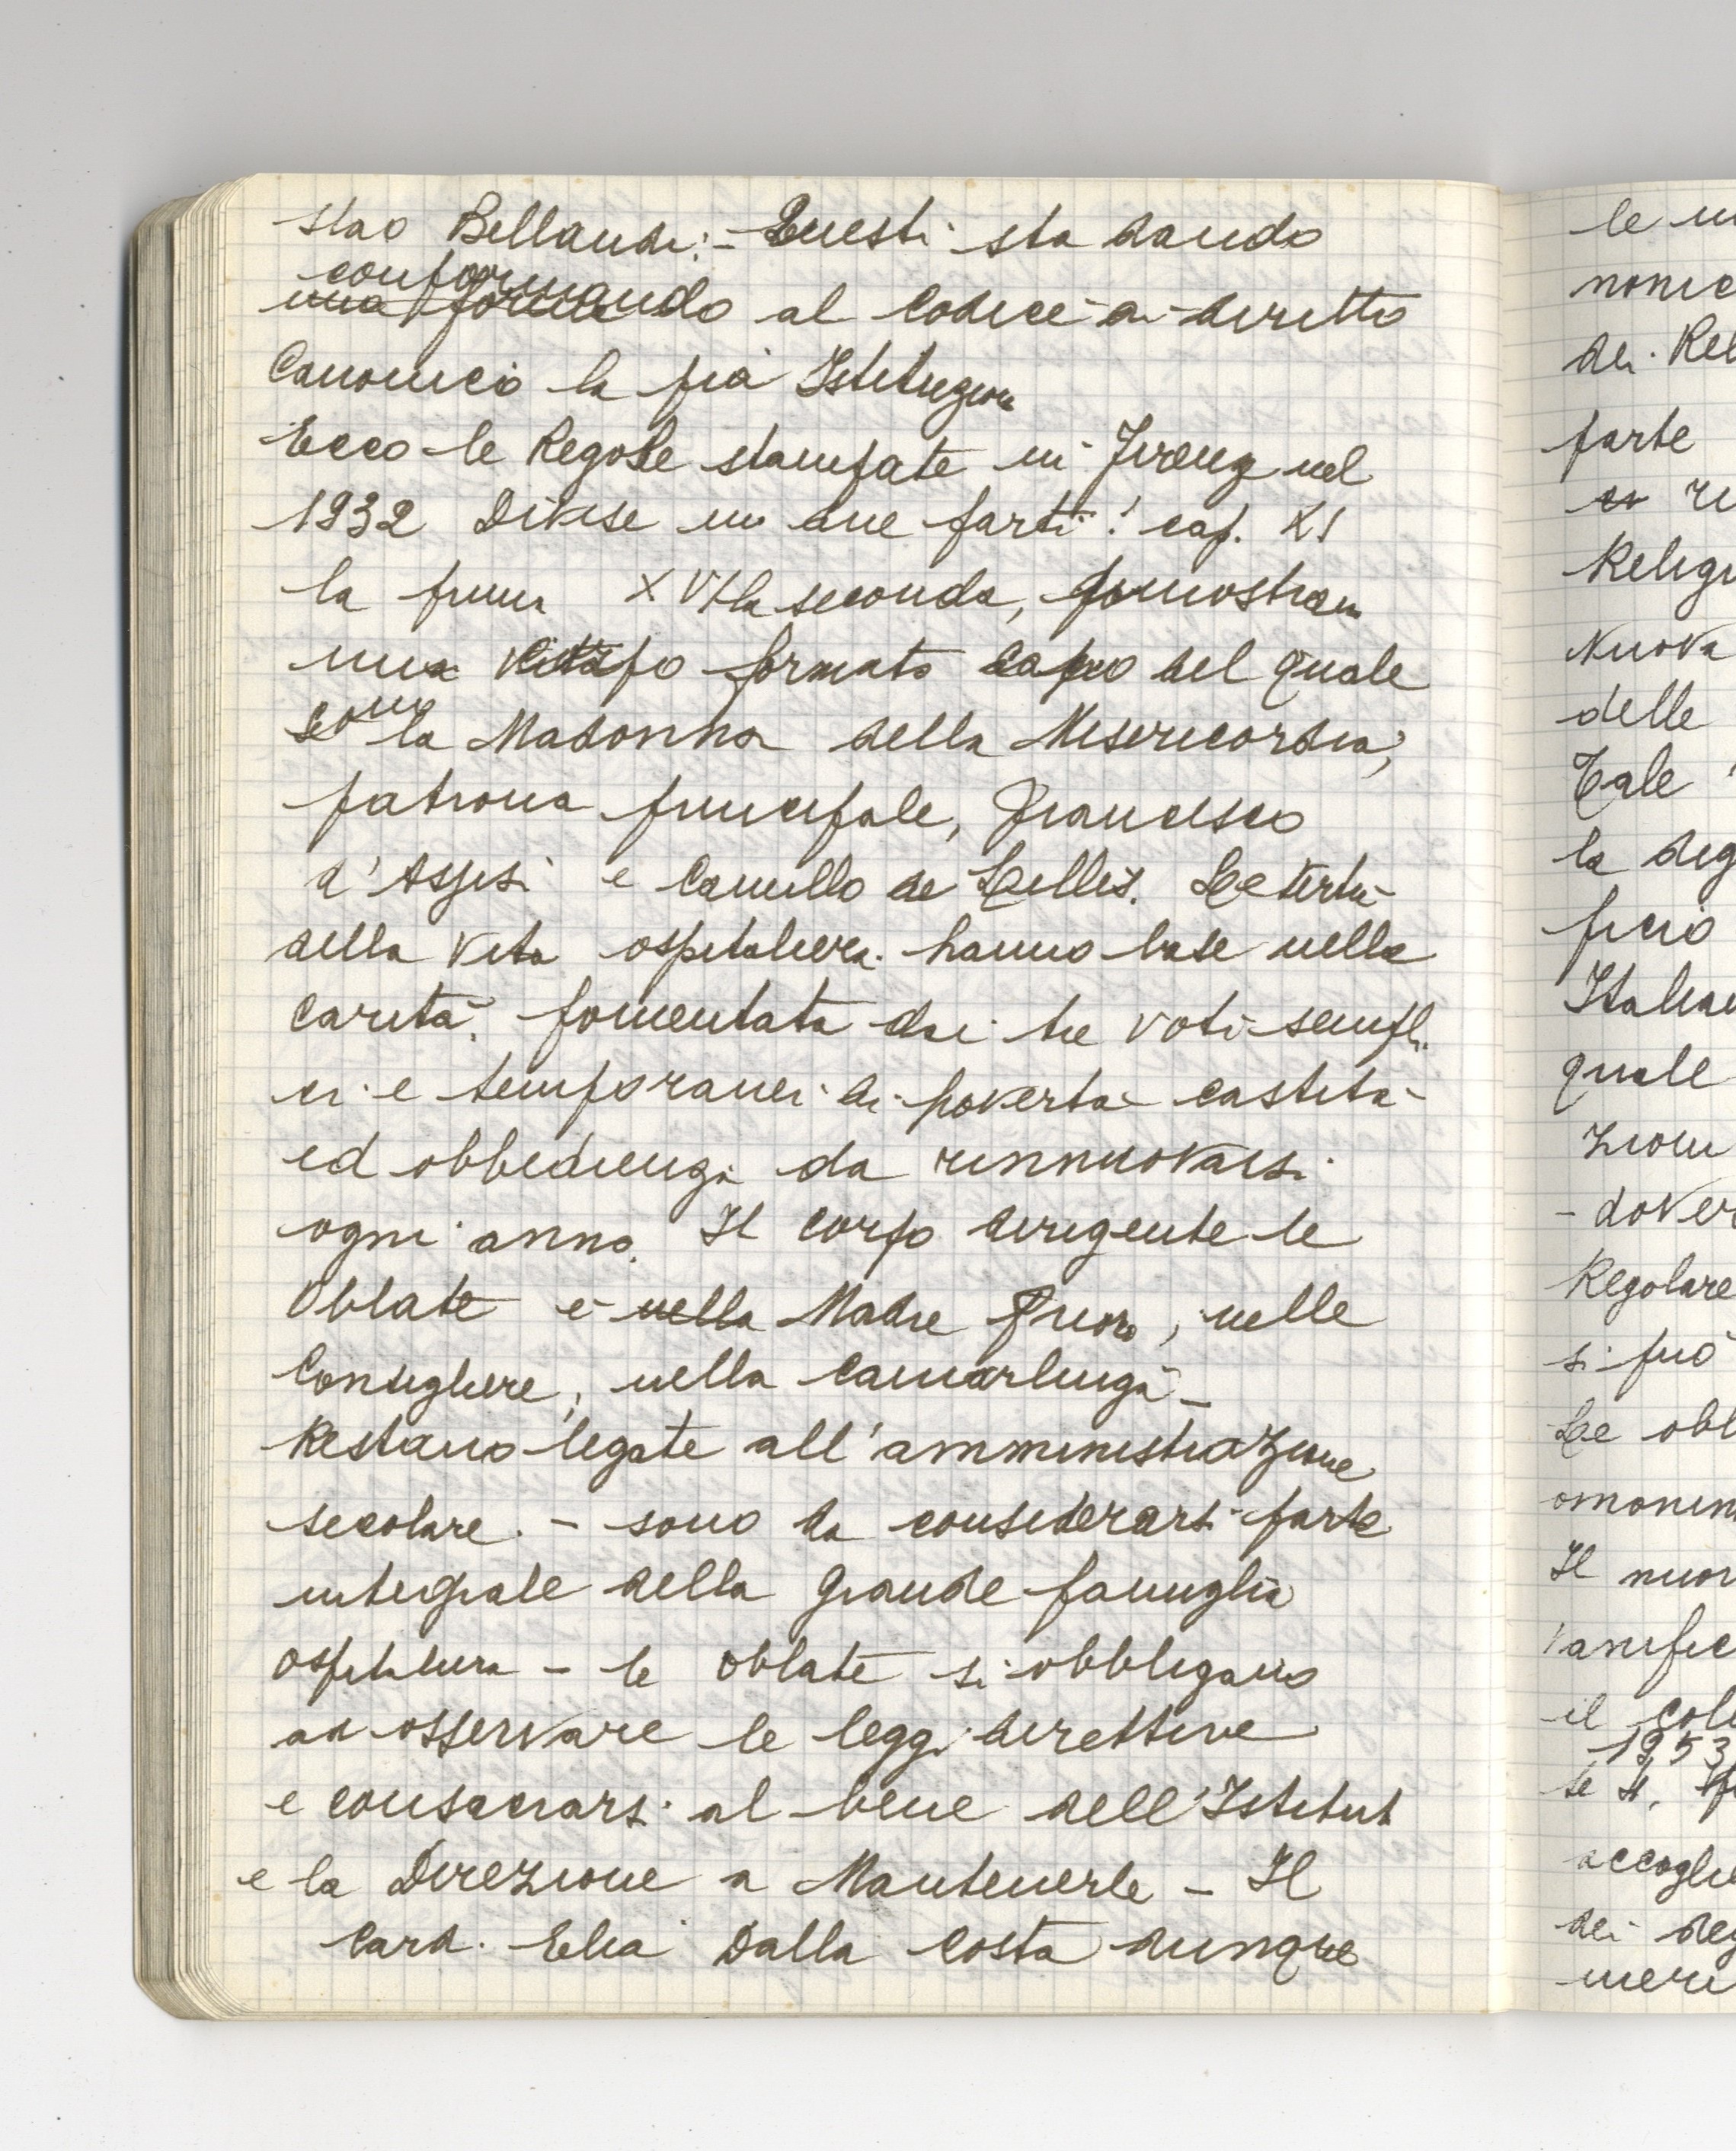 stao Bellandi:- Questi sta dando
conformando al Codice di diritto
Canonico la pia Istituzion
Ecco le Regole stampate in Firenz nel
1932 Divise in due parti: cap. XI
la prima XVI la seconda,
una formato capo del quale
sono la Madonna della Misericordia,
patrona principale, Francesco
d'Assisi e Camillo de Lellis. Le virtù
della vita ospitaliera hanno base nella
carità, fomentata dai tre voti sempli
ci e temporanei di povertà castità
ed obbedienza da rinnuovarsi
ogni anno. Il corpo dirigente le
Oblate è nella Madre Priora, nelle
Consigliere, nella Camarlinga -
Restano legate all'amministrazione
secolare. - sono da considerarsi parte
integrale della grande famiglia
ospitaliera - le oblate si obbligano
ad osservare le leggi direttive
e consacrarsi al bene dell'Istitut
e la Direzione a Mantenerle - Il
Card. Elia Dalla Costa dunque
le
dei Rel
parte
Nuova
delle
Tale
la
quale
Regolare
si può
Le obl
Il
il
1953
dei